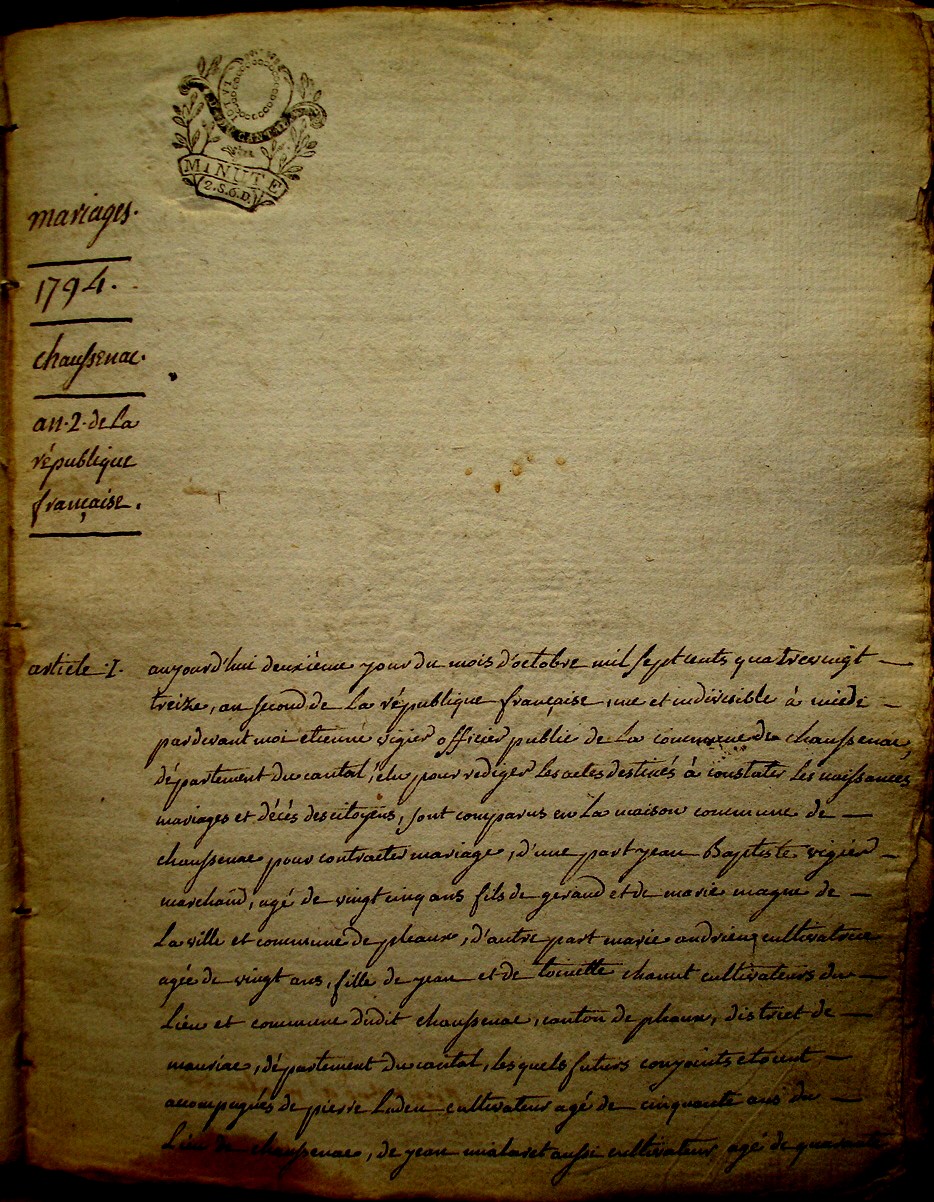 LA LOI
DEP. DU CANTAL
MINUTE
2.S.6.D.
mariages.
1794.
chaussenac.
an.2.de La
république
française.
article .1.
aujourd'hui deuxième jour du mois d'octobre mil sept cents quatre vingt
treize, an second de La république française, une et indivisible à midi
pardevant moi etienne vigier officier public de La commune de chaussenac,
département du cantal, élu pour rediger Les actes destinés à constater Les naissances
mariages et décés des citoyens, sont comparus en La maison commune de
chaussenac pour contracter mariage, d'une part jean Baptiste vigier
marchand, agé de vingt cinq ans fils de geraud et de marie magne de
La ville et commune de pleaux, d'autre part marie andrieu cultivatrice
agée de vingt ans, fille de jean et de toinette chanut cultivateurs du
Lieu et commune dudit chaussenac, canton de pleaux, district de
mauriac, département du cantal, lesquels futurs conjoints etoient
acompagnés de pierre Laden cultivateur agé de cinquante ans du
Lieu de chaussenac, de jean mialaret aussi cultivateur agé de quarante